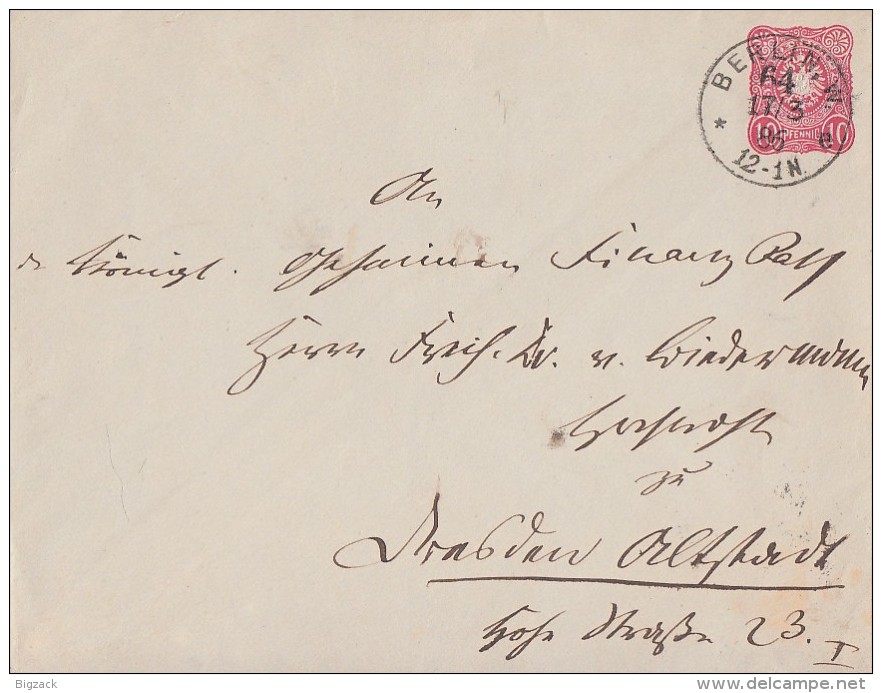 BERLIN, W
64
17/3
86
12-1N.
10 PFENNIG 10
An
Königl. Geheimen Finanz Rath
Herrn Freih. Dr. v. Biedermann
Hochwohl
zu
Dresden Altstadt
Hohe Straße 23. I
Bigzack
www.delcampe.net